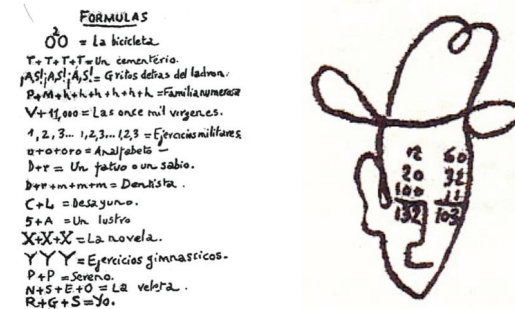 FORMULAS
2
OO = La bicicleta
T+T+T+T=Un cementerio.
¡AS!¡AS!¡A,S!= Gritos detras del ladron.
P+M+h+h+h+h+h+h =Familia numerosa
V+11,000 = Las once mil virgenes.
1, 2, 3... 1,2,3... 1,2,3 = Ejercicios militares
o+o+oro = Analfabeto —
D+r = Un fatuo o un sabio.
D+r+m+m+m = Dentista.
C+L = Desayuno.
5+A = Un lustro
X+X+X = La novela.
Y Y Y = Ejercicios gimnasticos.
P+P = Sereno.
N+S+E+O = La veleta.
R+G+S = Yo.
12 60
20 32
100 11
132 103